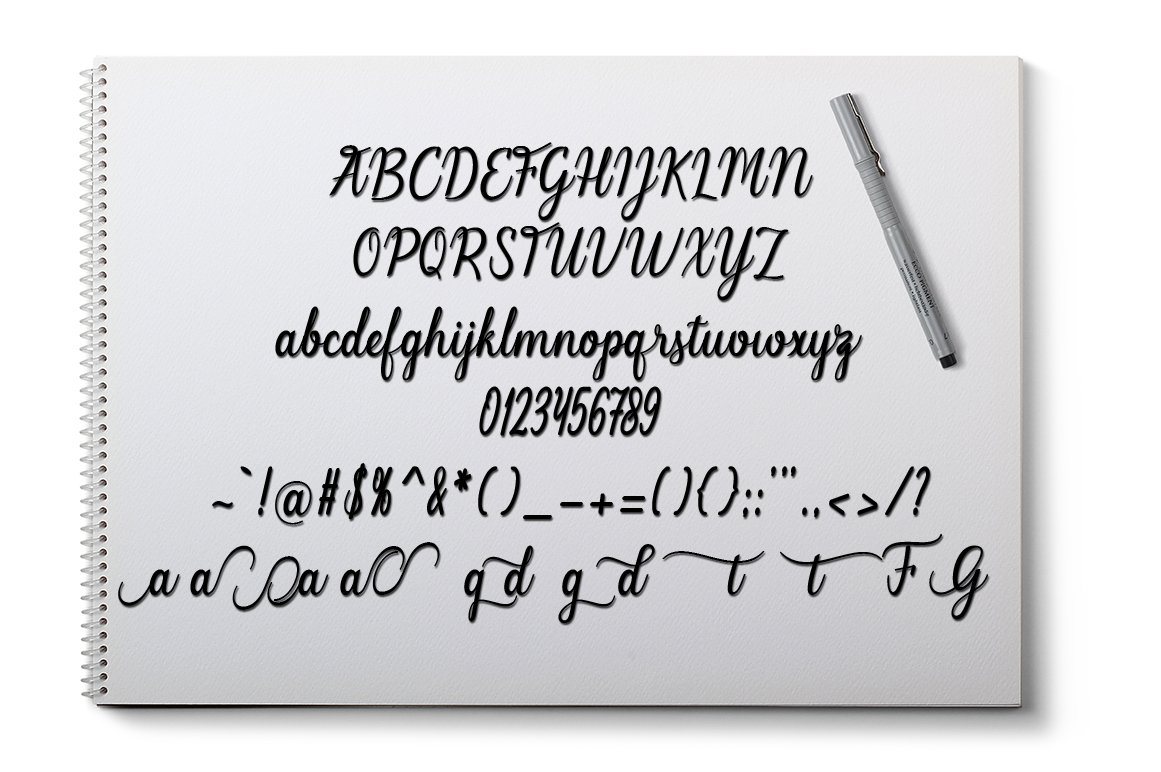 ABCDEFGHIJKLMN
OPQRSTUVWXYZ
abcdefghijklmnopqrstuvwxyz
0123456789
~`!@#$%^&*()_-+=(){};:'".,<>/?
a a a a g d g d t t F G
ECCO PIGMENT